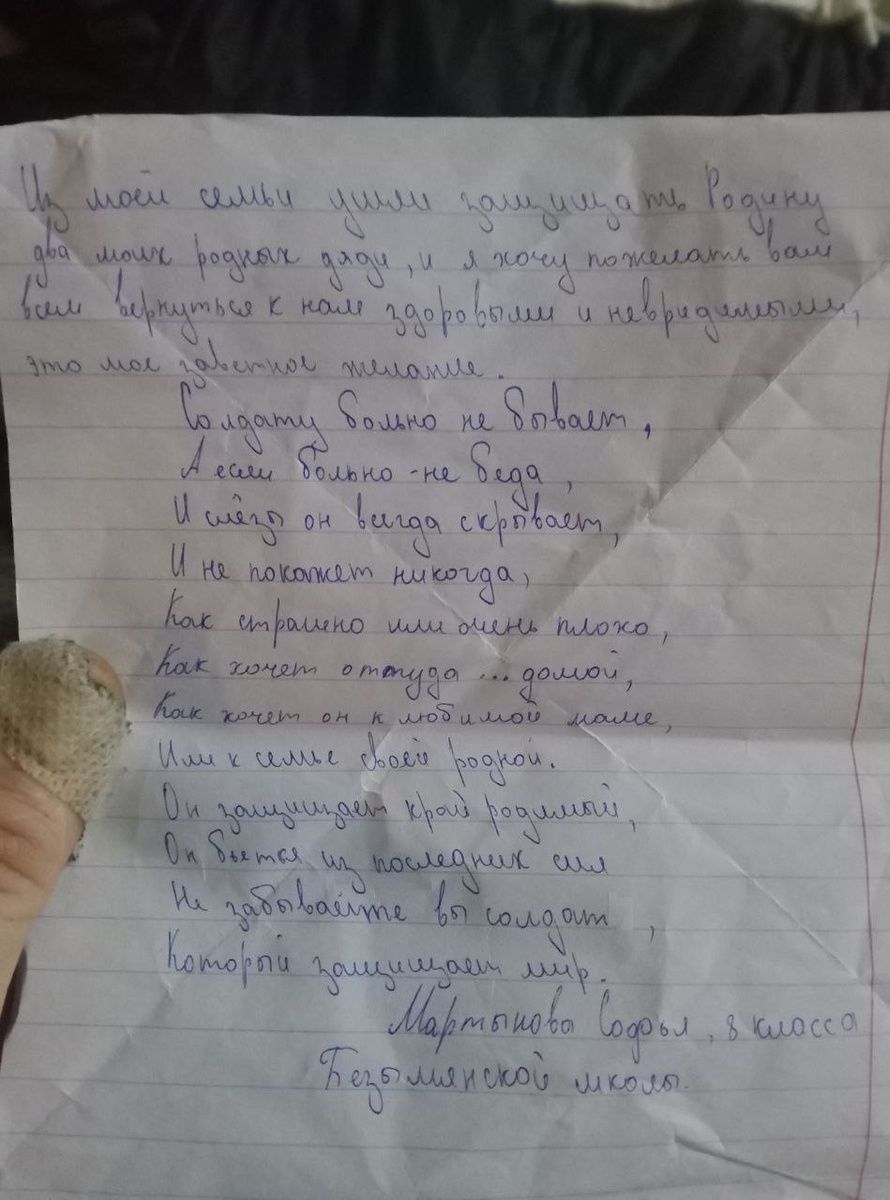 Из моей семьи ушли защищать Родину
два моих родных дяди, и я хочу пожелать вам
всем вернуться к нам здоровыми и невридимыми,
это мое заветное желание.
Солдату больно не бывает,
А если больно - не беда,
И слёзы он всегда скрывает,
И не покажет никогда,
Как страшно или очень плохо,
Как хочет оттуда ... домой,
Как хочет он к любимой маме,
Или к семье своей родной.
Он защищает край родимый,
Он бьется из последних сил
Не забывайте вы солдат ,
Который защищает мир.
Мартынова Софья, 8 класса
Безымянской школы.